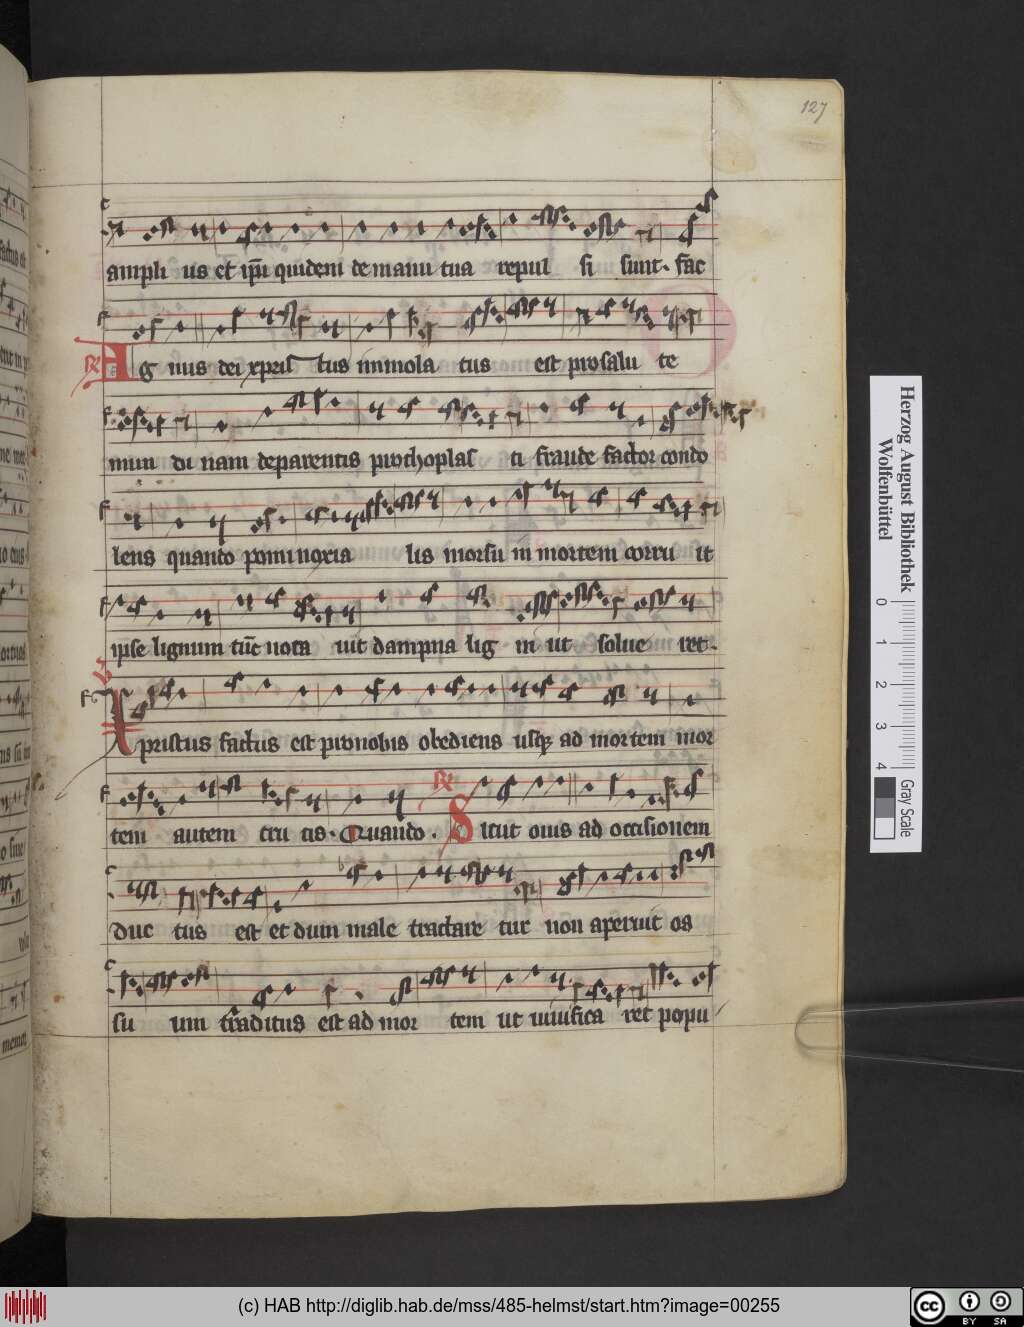 127
ampli us et ip̄i quidem de manu tua repul si sunt. fac
R Agnus dei xpris tus immola tus est pro salu te
mun di nam de parentis prothoplas ti fraude factor condo
lens quando pomi noxia lis morsu in mortem corru it
ipse lignum tūc nota uit dampna lig ni ut solue ret.
V Xpristus factus est pro nobis obediens usq̢ ad mortem mor
tem autem cru cis. Quando. R Sicut ouis ad occisionem
duc tus est et dum male tractare tur non aperuit os
su um traditus est ad mor tem ut uiuifica ret popu
Herzog August Bibliothek
Wolfenbüttel
0 1 2 3 4
Gray Scale
(c) HAB http://diglib.hab.de/mss/485-helmst/start.htm?image=00255
cc BY SA